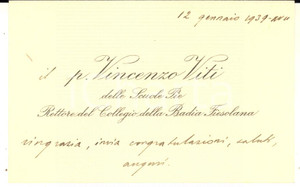 12 gennaio 1939-XVII
il p. Vincenzo Viti
delle Scuole Pie
Rettore del Collegio della Badia Fiesolana
ringrazia, invia congratulazioni, saluti,
auguri.